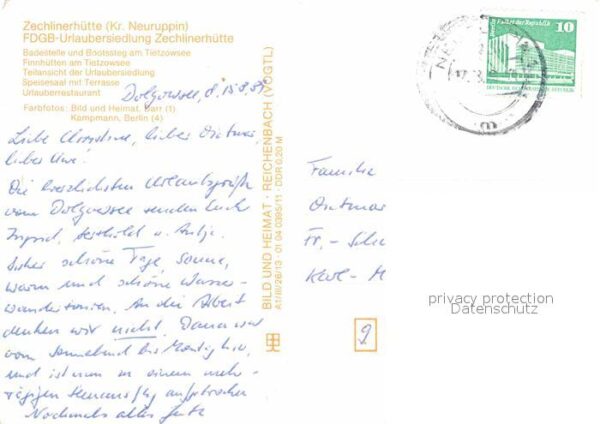 Zechlinerhütte (Kr. Neuruppin)
FDGB-Urlaubersiedlung Zechlinerhütte
Badestelle und Bootssteg am Tietzowsee
Finnhütten am Tietzowsee
Teilansicht der Urlaubersiedlung
Speisesaal mit Terrasse
Urlauberrestaurant
Farbfotos: Bild und Heimat, Darr (1)
Kampmann, Berlin (4)
Dolgowsee, d. 15.8.
Liebe lieber
lieber Uwe!
Die herzlichsten Urlaubsgrüße
vom Dolgowsee senden Euch
u. Antje.
Bisher schöne Tage, Sonne,
warm und schöne Wasser-
wandertouren. An die Arbeit
denken wir nicht. war
vom Sonnabend bis Montag hier,
und ist nun zu einem mehr-
tägigen aufgebrochen
Nochmals alles Gute
BILD UND HEIMAT · REICHENBACH (VOGTL)
A1/III/26/13 01 04 0395/11 · DDR 0,20 M
Palast der Republik
10
DEUTSCHE DEMOKRATISCHE REPUBLIK
Familie
Fr.-
Karl-M
9
privacy protection
Datenschutz